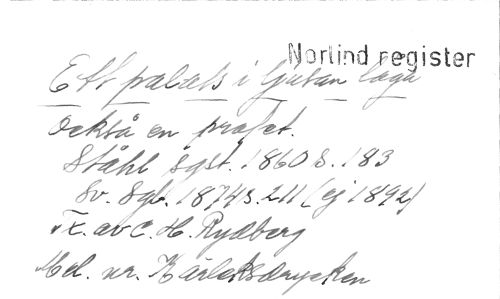 Norlind register
Ett palats i ljusan låga
också en profet.
Ståhl sgst. 1860 s. 183
Sv. Sgb. 1874 s. 211 (ej 1892)
Tx. av C. H. Rydberg
Mel. ur. Kärleksdrycken